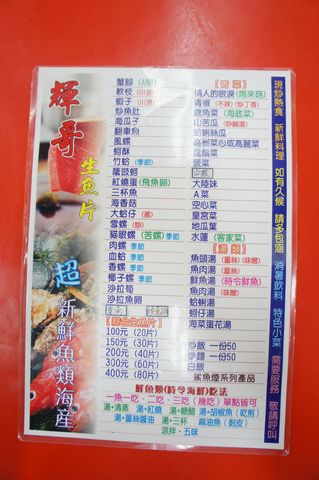 輝哥
生魚片
超
新鮮魚類海產
蟹腳(A級)
軟枝(川燙)
蝦子(川燙)
炒魚肚
海瓜子
翻車魚
風螺
蚵酥
竹蛤 季節
蔭豉蚵
紅燒蛋(飛魚卵)
三杯魚
海香菇
大蛤仔(蒸)
雪螺(炒)
貓眼螺(苦螺)季節
肉螺 季節
血蛤 季節
香螺 季節
椰子螺 季節
沙拉筍
沙拉魚卵
【綜合生魚片】
100元 (20片)
150元 (30片)
200元 (40片)
300元 (60片)
400元 (80片)
【青菜】
情人的眼淚(雨來菇)
青椒(不辣)(炒丁香)
鹿角菜(海底菜)
山苦瓜(炒鹹蛋)
蛤蜊絲瓜
高麗菜心或高麗菜
龍鬚菜
菠菜
山蘇
大陸妹
A菜
空心菜
皇宮菜
地瓜葉
水蓮(客家菜)
【湯類】
魚頭湯(薑絲)(味噌)
魚肉湯(薑絲)
鮮魚湯(時令鮮魚)
魚肉湯(味噌)
蛤蜊湯
蚵仔湯
海菜蛋花湯
炒飯 一份50
炒麵 一份50
白飯
鯊魚煙系列產品
鮮魚類(時令海鮮)吃法
一魚一吃、二吃、三吃(幾吃)單點皆可
·湯+清蒸 ·湯+紅燒 ·湯+糖醋 ·湯+胡椒魚(乾煎)
·湯+薑絲醬油 ·湯+三杯 麻油魚(剝皮)
涼拌·五味
現炒熱食 新鮮料理 如有久候 請多包涵
消暑飲料 特色小菜 需要服務 敬請呼叫